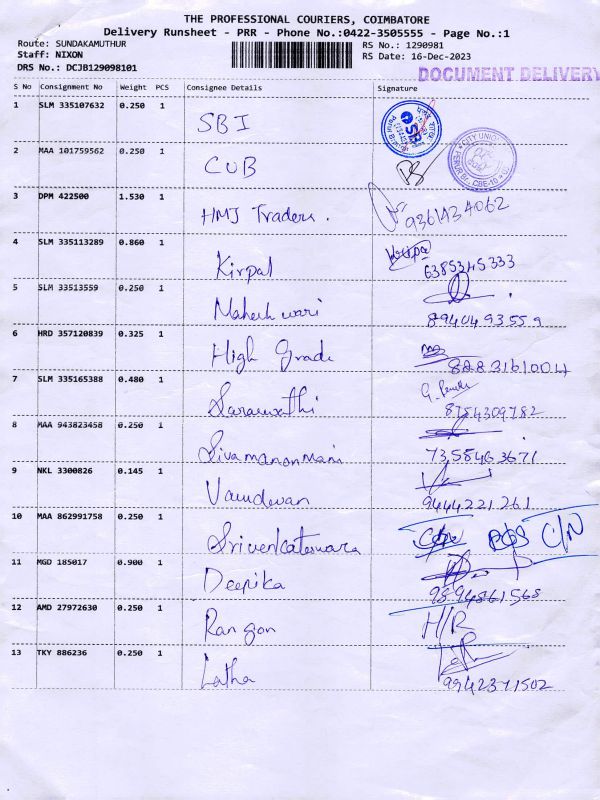 THE PROFESSIONAL COURIERS, COIMBATORE
Delivery Runsheet - PRR - Phone No.:0422-3505555 - Page No.:1
Route: SUNDAKAMUTHUR RS No.: 1290981
Staff: NIXON RS Date: 16-Dec-2023
DRS No.: DCJB129098101
DOCUMENT DELIVERY
S No Consignment No Weight PCS Consignee Details Signature
1 SLM 335107632 0.250 1 SBI
SBI
2 MAA 101759562 0.250 1 CUB
CITY UNION
3 DPM 422500 1.530 1 HMJ Traders. 9361434062
4 SLM 335113289 0.860 1 Kirpal 6385345333
5 SLM 33513559 0.250 1 Maheshwari 8940493559
6 HRD 357120839 0.325 1 High Grade 8883161004
7 SLM 335165388 0.480 1 Saraswathi 8754309782
8 MAA 943823458 0.250 1 Sivamanonmani 7355463671
9 NKL 3300826 0.145 1 Vamdevan 9444221261
10 MAA 862991758 0.250 1 Srivenkateswara C/N
11 MGD 185017 0.900 1 Deepika 9894861568
12 AMD 27972630 0.250 1 Rangon H/R
13 TKY 886236 0.250 1 Latha 9942371502